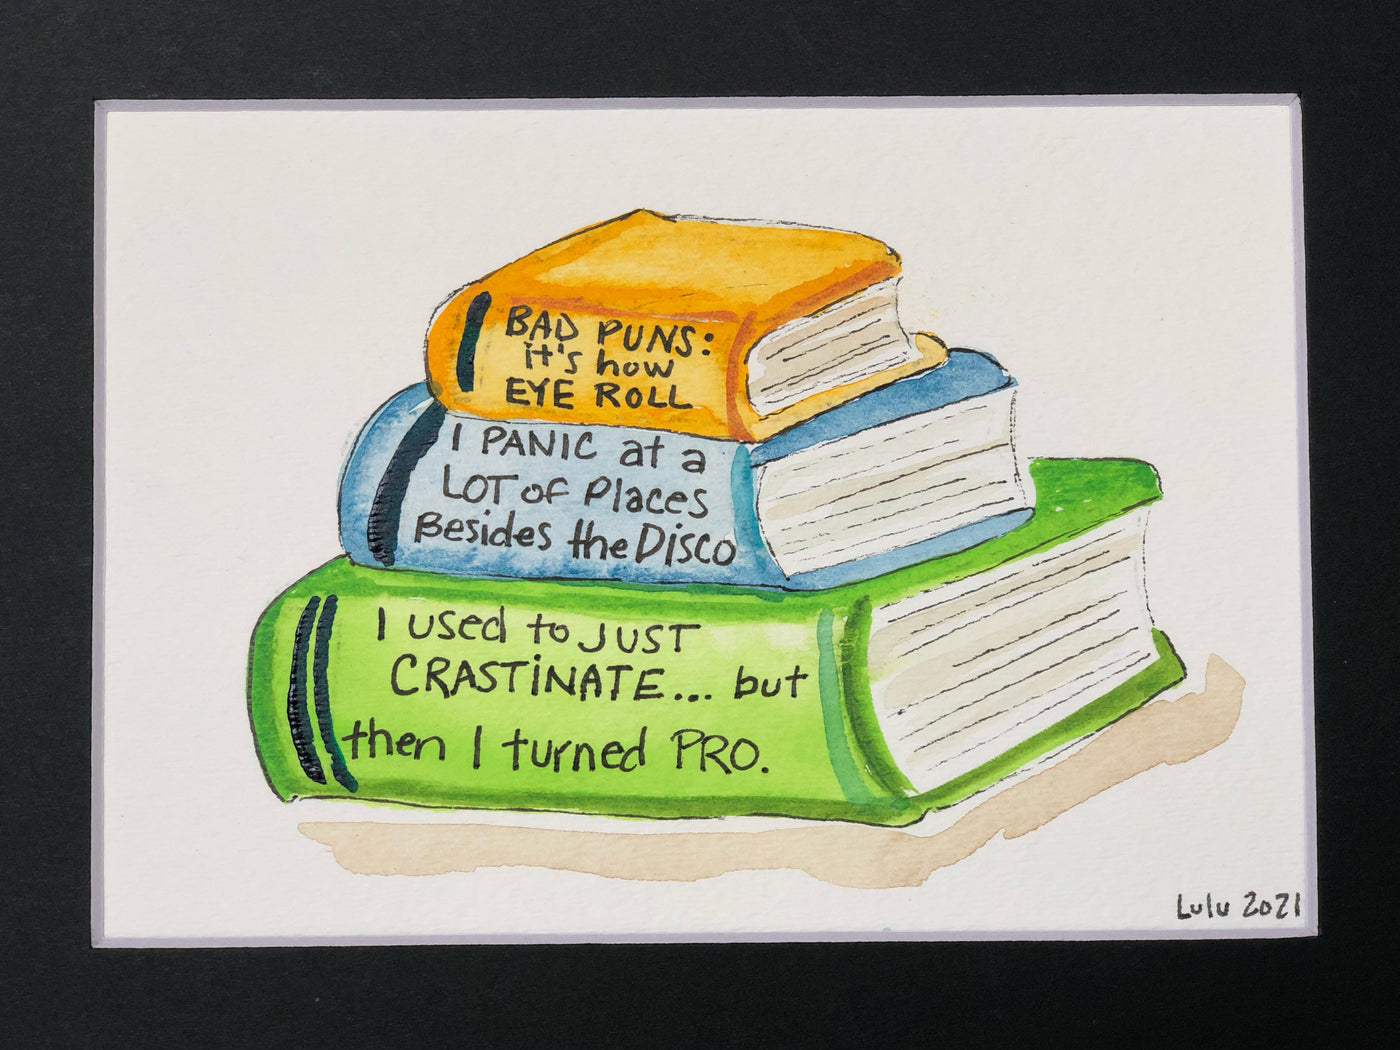 BAD PUNS:
it's how
EYE ROLL
I PANIC at a
LOT of Places
Besides the DISCO
I used to JUST
CRASTiNATE... but
then I turned PRO.
Lulu 2021